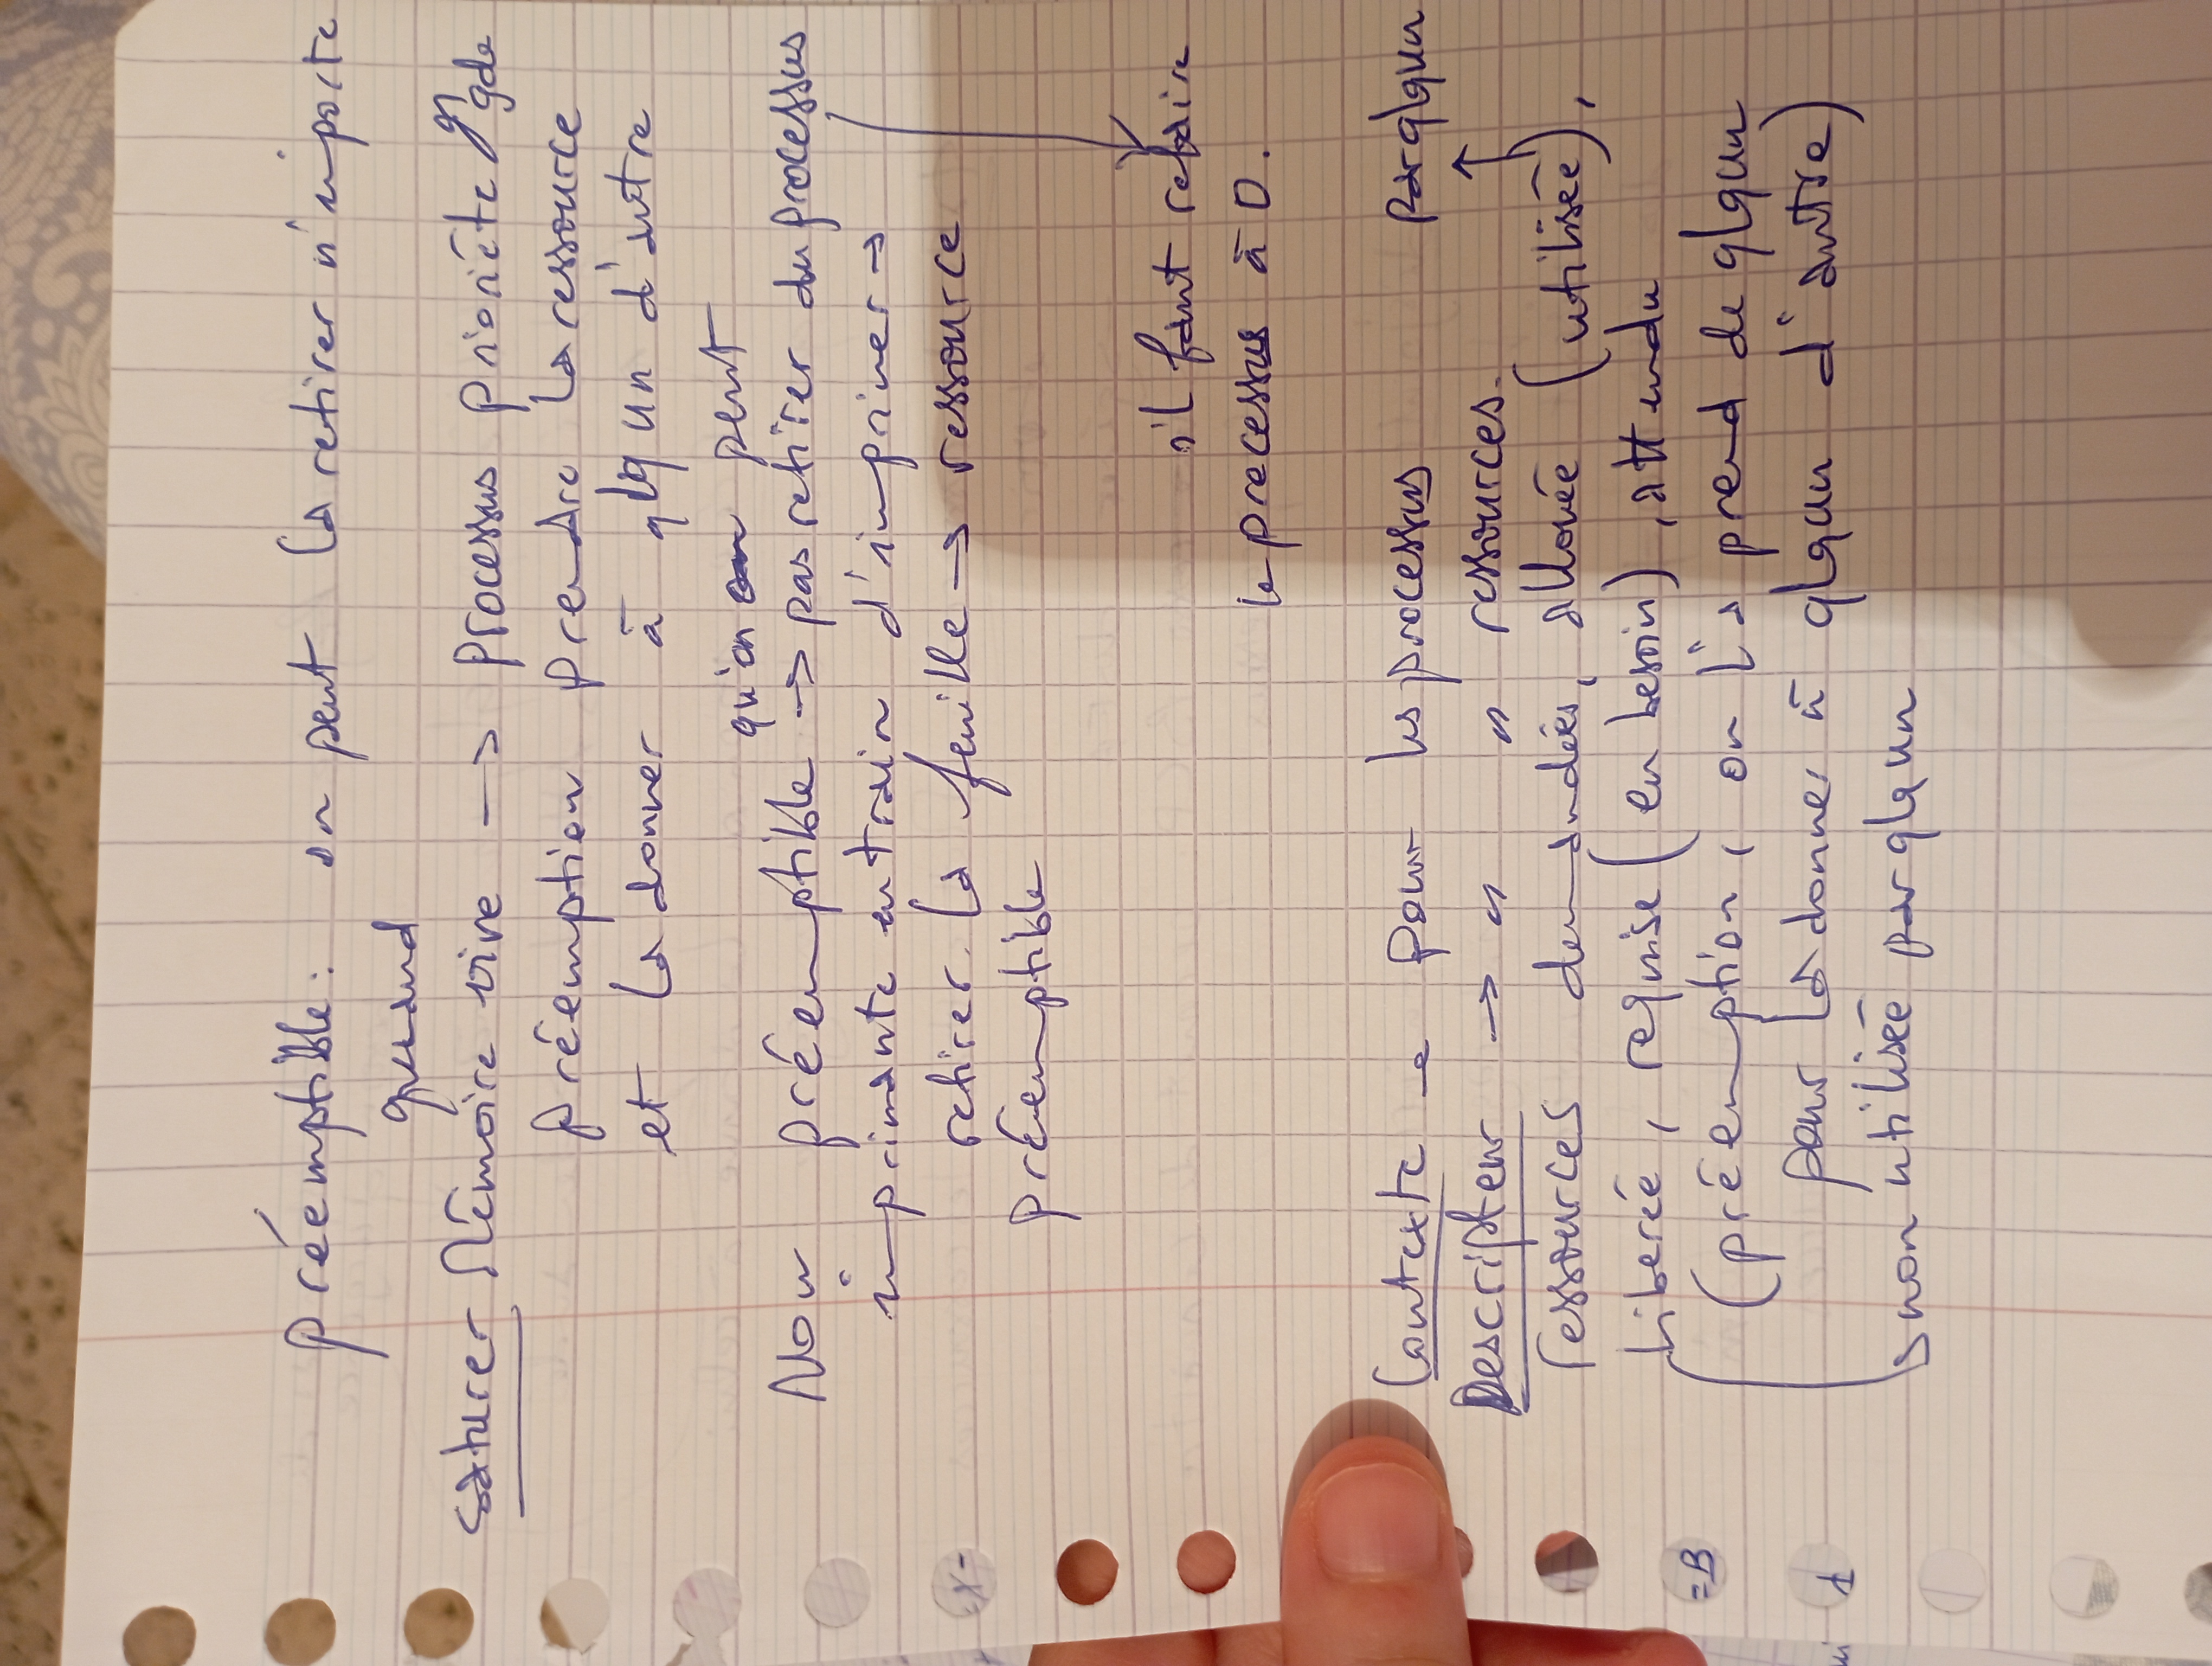 préemptible : on peut la retirer n'importe
quand
saturer Mémoire vive → processus prioriéte + gde
préemption prendre la ressource
et la donner à qlqun d'autre
qu'on peut
Non préemptible → pas retirer du processus
imprimante en train d'imprimer →
retirer la feuille → ressource
préemptible
s'il faut refaire
le processus à 0.
Contexte → pour les processus
par qlqun
Descripteur → " " ressources.
ressources demandées, allouée (utilisée),
Liberée, requise (en besoin), attendu
(préemption, on l'a prend de qlqun
pour la donner à qlqun d'autre)
→ non utilisée par qlqun
=B
1